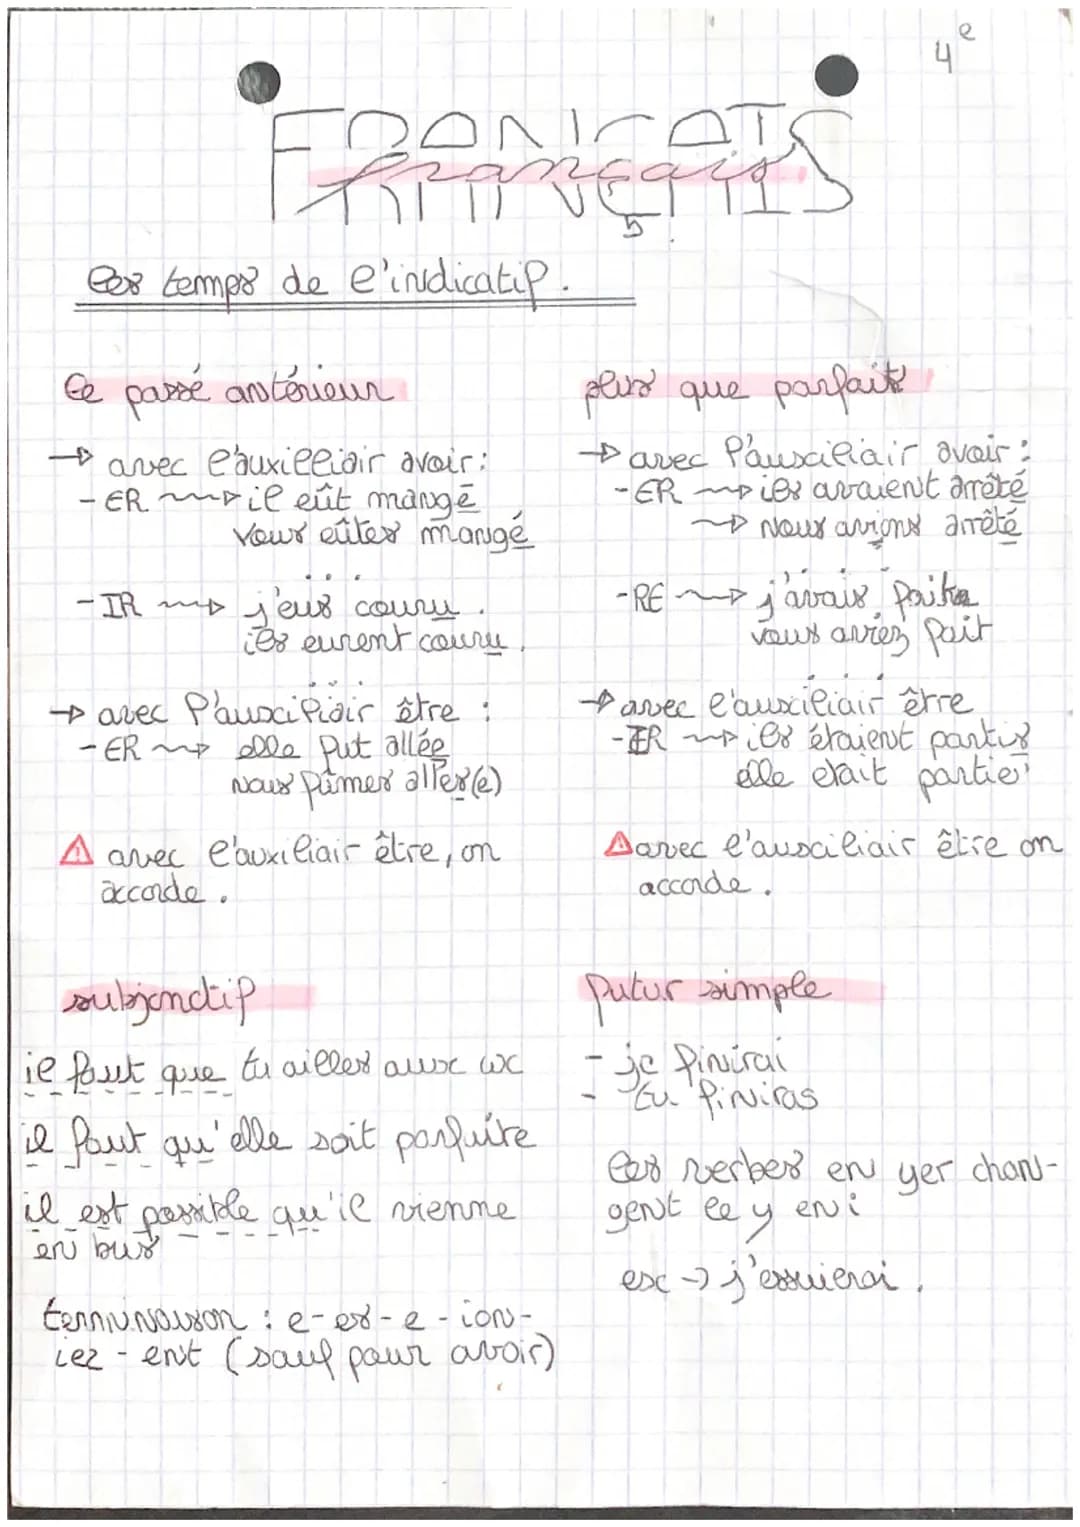 4e
FRANÇAIS
français
les temps de l'indicatif.
le passé antérieur
→ avec l'auxilliair avoir:
- ER → il eût mangé
vous eûtes mangé
- IR → j'eus couru.
ils eurent couru.
→ avec l'auxciliair être :
- ER → elle fut allée
nous fûmes allés(e)
⚠ avec l'auxiliair être, on
accorde.
plus que parfait
→ avec l'auxiliair avoir :
- ER → ils avaient arrêté
→ nous avions arrêté
- RE → j'avais fait
vous aviez fait
→ avec l'auxciliair être
- IR → ils étaient partis
elle etait partie
⚠ avec l'auxciliair être on
accorde.
subjonctif
il faut que tu ailles aux wc
il faut qu'elle soit parfuite
il est possible qu'il vienne
en bus
terminaison : e-es-e-ion-
iez-ent (sauf pour avoir)
futur simple
- je finirai
- tu finiras
les verbes en yer chan-
gent le y en i
ex → j'essuierai.